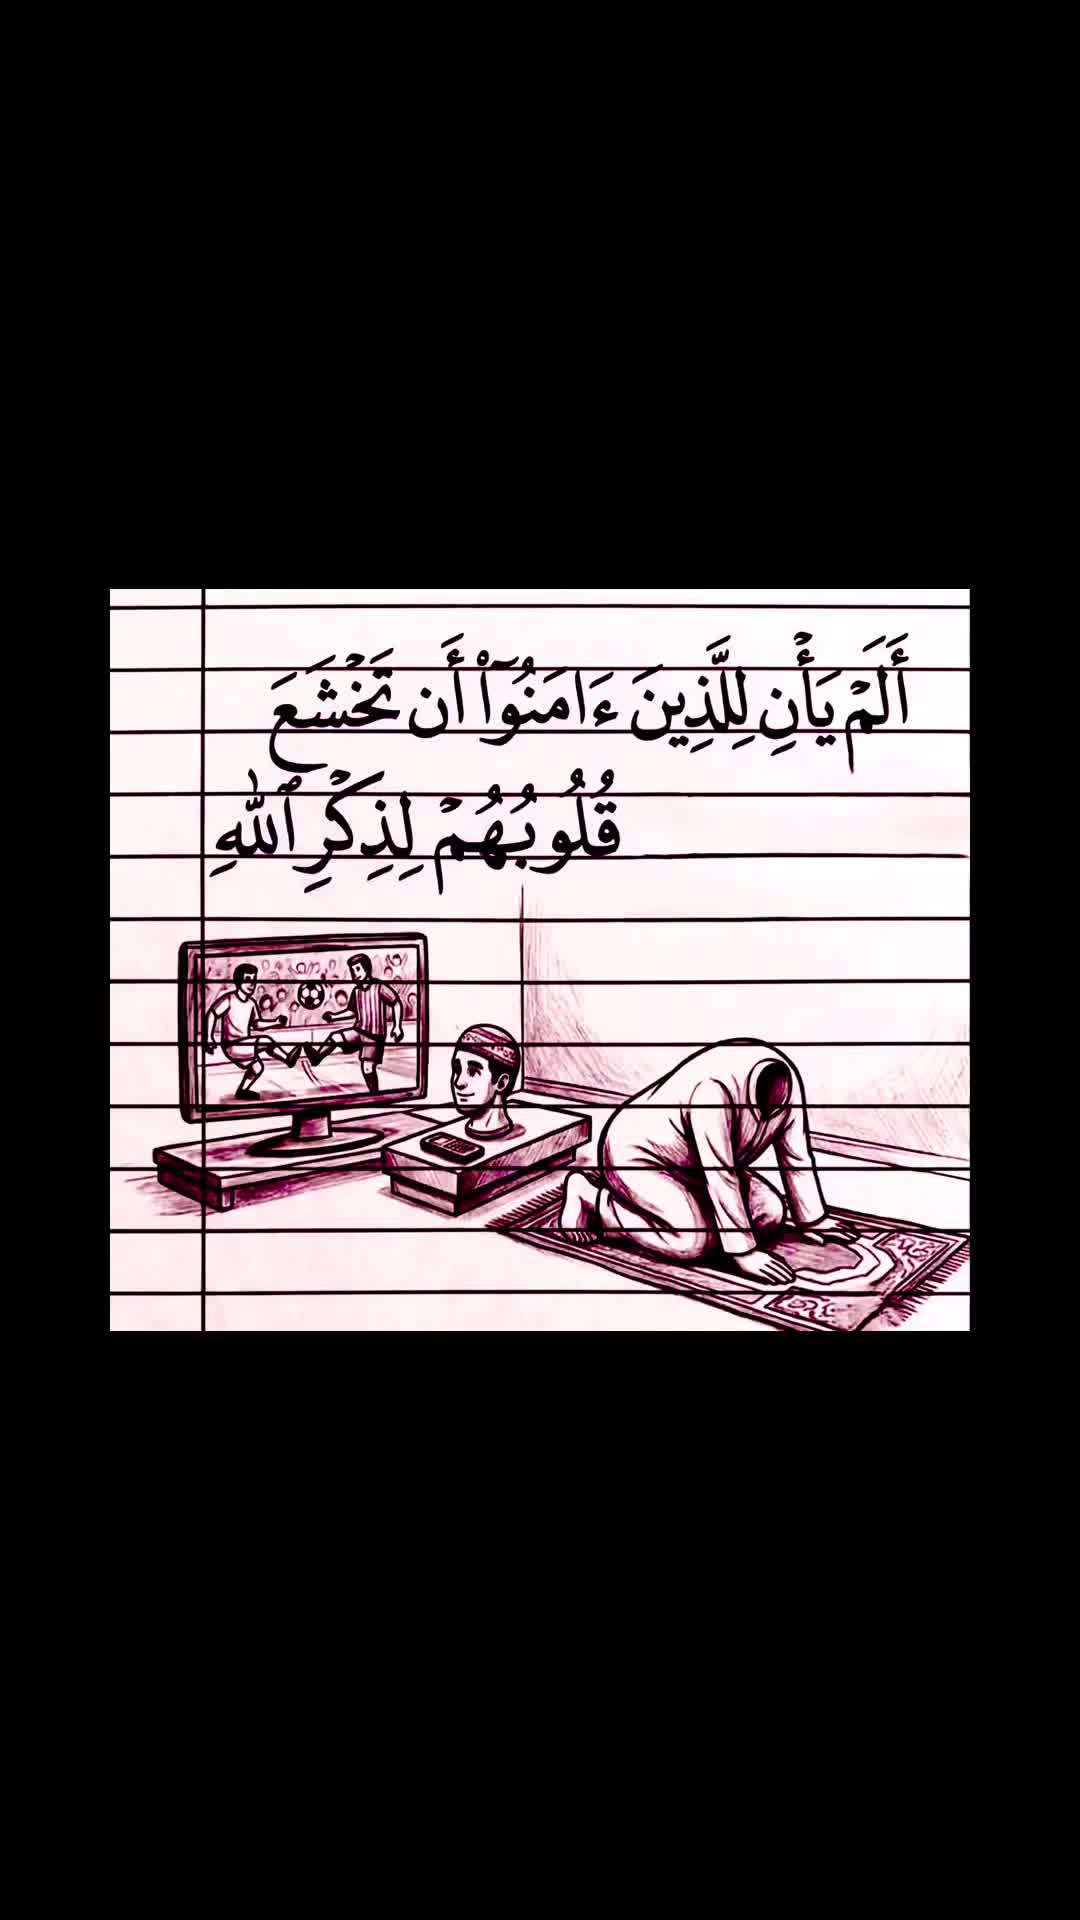 أَلَمۡ يَأۡنِ لِلَّذِينَ ءَامَنُوٓاْ أَن تَخۡشَعَ
قُلُوبُهُمۡ لِذِكۡرِ ٱللَّهِ